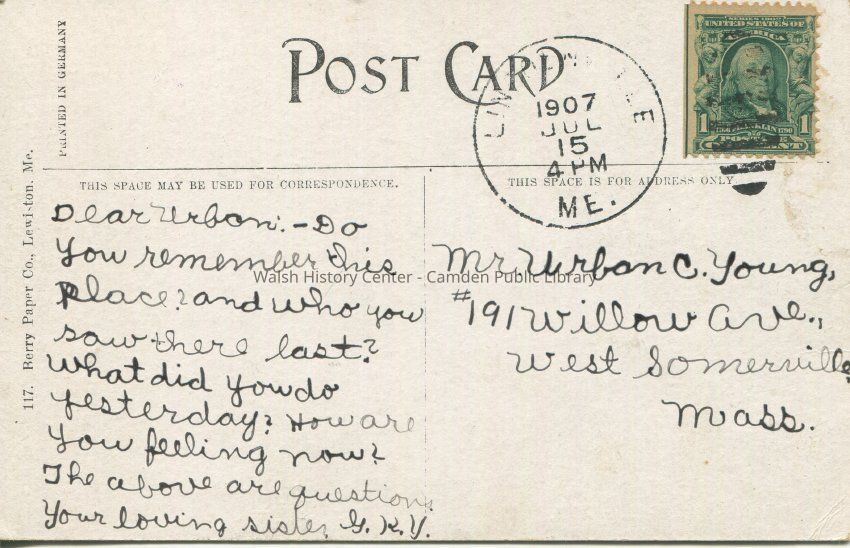 POST CARD
PRINTED IN GERMANY
117. Berry Paper Co., Lewiston, Me.
SERIES 1902
UNITED STATES OF
AMERICA
1
1706 FRANKLIN 1790
1
1907
JUL
15
4 PM
ME.
THIS SPACE MAY BE USED FOR CORRESPONDENCE.
THIS SPACE IS FOR ADDRESS ONLY
Dear Urban:-Do
you remember this
place? and who you
saw there last?
What did you do
yesterday? How are
you feeling now?
The above are questions
Your loving sister, G. K. Y.
Mr Urban C. Young,
#191 Willow Ave.,
West Somerville,
Mass.
Walsh History Center - Camden Public Library